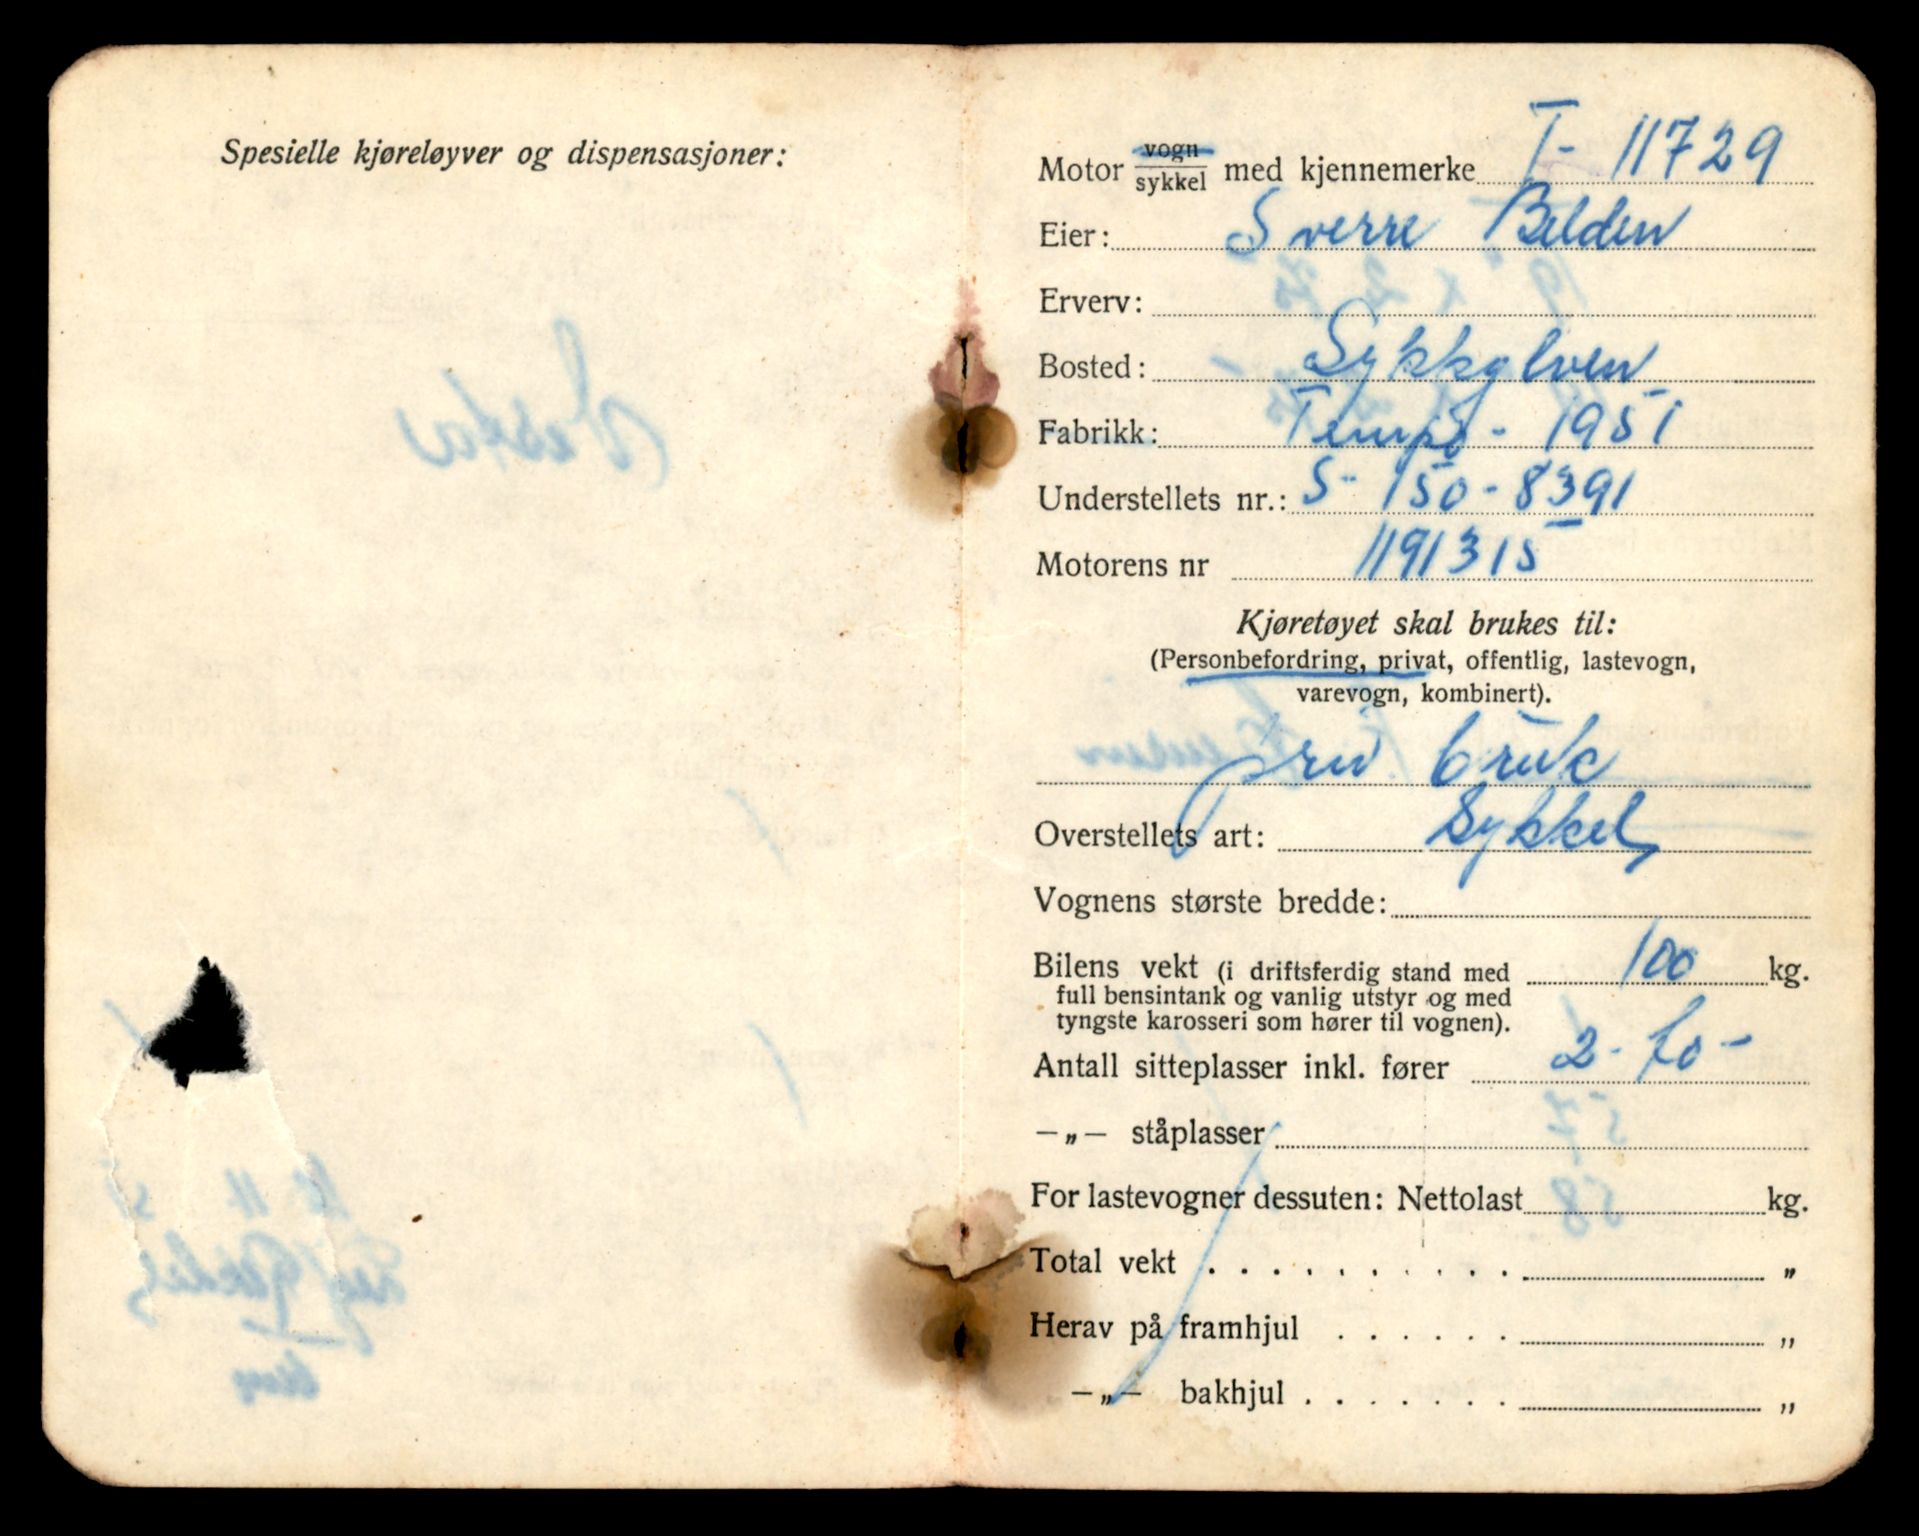 Spesielle kjøreløyver og dispensasjoner:
Motor vogn/sykkel med kjennemerke T- 11729
Eier: Sverre Belden
Erverv:
Bosted: Sykkylven
Fabrikk: Tempo - 1951
Understellets nr.: S- 150 - 8391
Motorens nr 1191315
Kjøretøyet skal brukes til:
(Personbefordring, privat, offentlig, lastevogn,
varevogn, kombinert).
priv bruk
Overstellets art: Sykkel
Vognens største bredde:
Bilens vekt (i driftsferdig stand med 100 kg.
full bensintank og vanlig utstyr og med
tyngste karosseri som hører til vognen).
Antall sitteplasser inkl. fører 2 - to -
—„— ståplasser
For lastevogner dessuten: Nettolast kg.
Total vekt . . . . . . . . . . „
Herav på framhjul . . . . . . „
—„— bakhjul . . . . . . . „